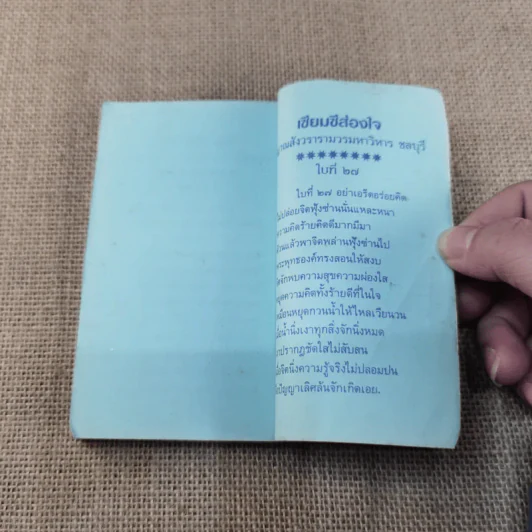 เซียมซีส่องใจ
ณสังวรารามวรมหาวิหาร ชลบุรี
********
ใบที่ ๒๗
ใบที่ ๒๗ อย่าเอร็ดอร่อยคิด
ปล่อยจิตฟุ้งซ่านนั่นแหละหนา
ความคิดร้ายคิดดีมากมีมา
แล้วพาจิตพล่านฟุ้งซ่านไป
พระพุทธองค์ทรงสอนให้สงบ
จักพบความสุขความผ่องใส
หยุดความคิดทั้งร้ายดีที่ในใจ
เหมือนหยุดกวนน้ำให้ไหลเวียนวน
น้ำนิ่งเงาทุกสิ่งจักนิ่งหมด
ปรากฏชัดใสไม่สับสน
จิตนิ่งความรู้จริงไม่ปลอมปน
ปัญญาเลิศล้นจักเกิดเอย.